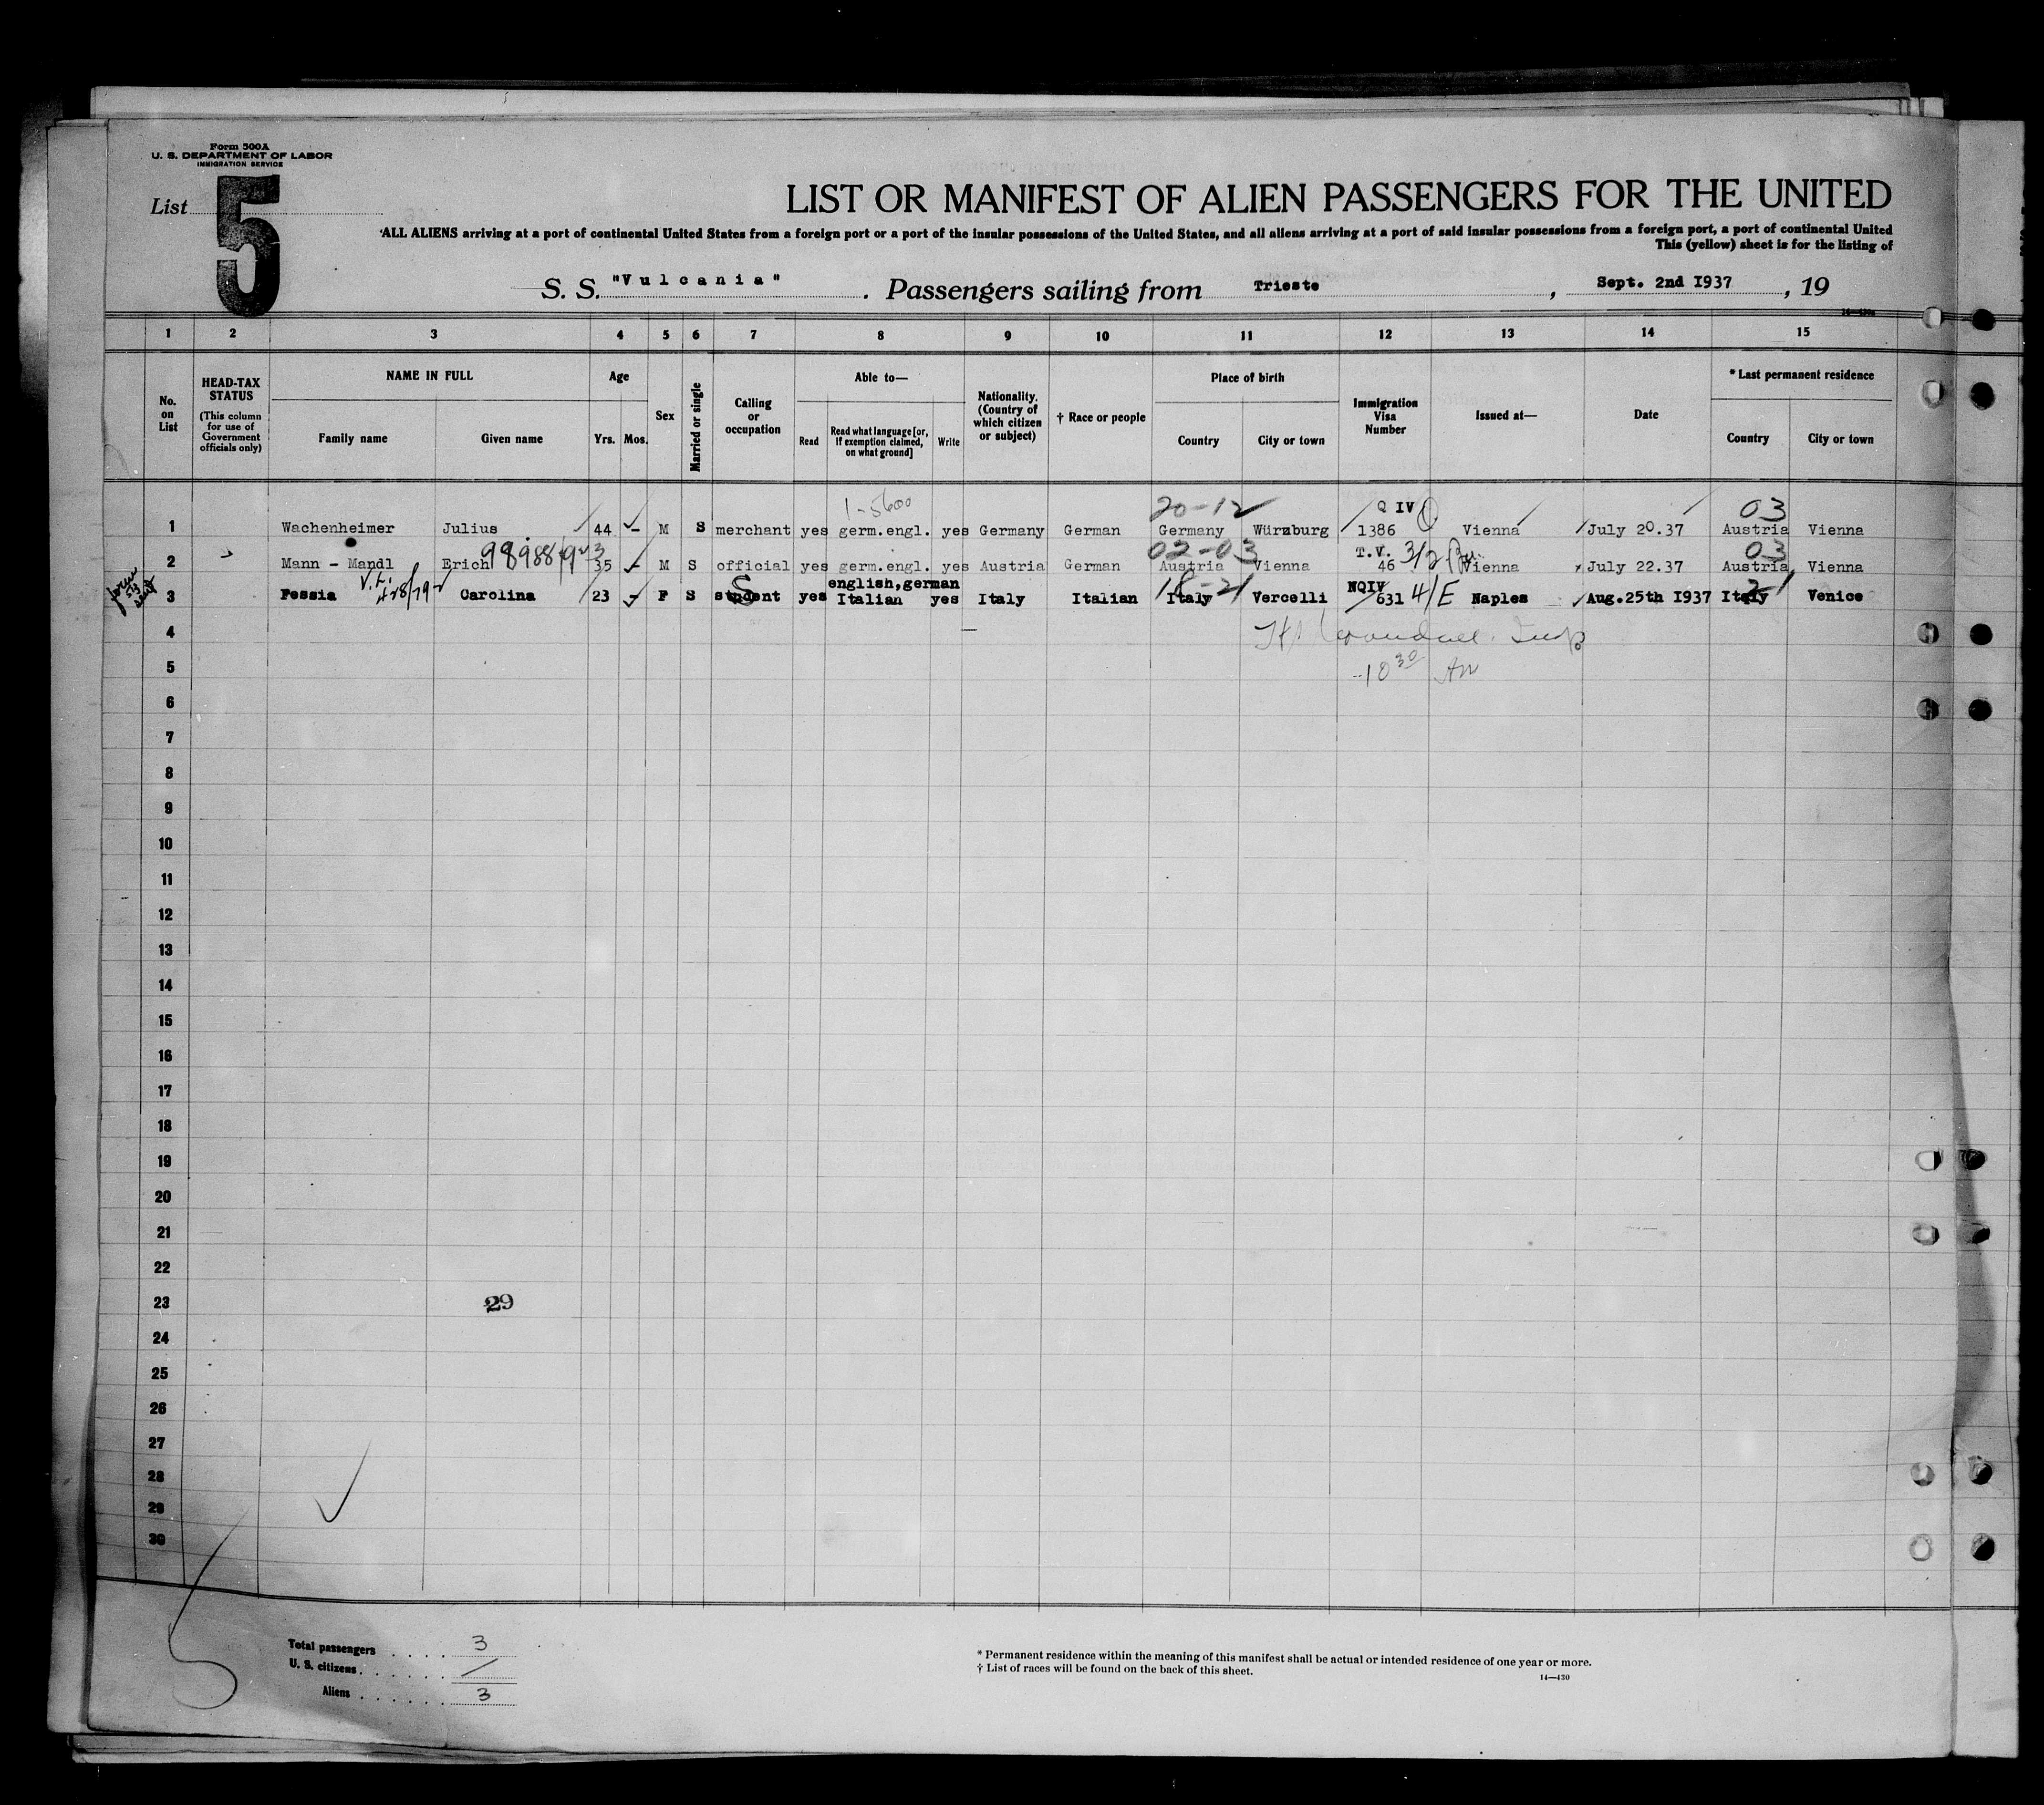 Form 500A
U. S. DEPARTMENT OF LABOR
IMMIGRATION SERVICE
List 5
LIST OR MANIFEST OF ALIEN PASSENGERS FOR THE UNITED
ALL ALIENS arriving at a port of continental United States from a foreign port or a port of the insular possessions of the United States, and all aliens arriving at a port of said insular possessions from a foreign port, a port of continental United
This (yellow) sheet is for the listing of
S. S. "Vulcania" . Passengers sailing from Trieste , Sept. 2nd 1937 , 19
14—430a
1 2 3 4 5 6 7 8 9 10 11 12 13 14 15
No. on List
HEAD-TAX STATUS
(This column for use of Government officials only)
NAME IN FULL
Family name Given name
Age
Yrs. Mos.
Sex
Married or single
Calling or occupation
Able to—
Read Read what language [or, if exemption claimed, on what ground] Write
Nationality. (Country of which citizen or subject)
† Race or people
Place of birth
Country City or town
Immigration Visa Number
Issued at—
Date
* Last permanent residence
Country City or town
1-5600 20-12 Q IV 03
1 Wachenheimer Julius 44 - M S merchant yes germ.engl. yes Germany German Germany Würzburg 1386 Vienna July 20.37 Austria Vienna
02-03 T.V. 3/2 03
2 Mann - Mandl Erich 35 - M S official yes germ.engl. yes Austria German Austria Vienna 46 Vienna July 22.37 Austria Vienna
english,german NQIV
3 Pessia Carolina 23 - F S student S yes Italian yes Italy Italian Italy Vercelli 631 4/E Naples Aug.25th 1937 Italy Venice
4
10 30 AM
5
6
7
8
9
10
11
12
13
14
15
16
17
18
19
20
21
22
23 29
24
25
26
27
28
29
30
Total passengers . . . . 3
U. S. citizens . . . . . . /
Aliens . . . . . . 3
* Permanent residence within the meaning of this manifest shall be actual or intended residence of one year or more.
† List of races will be found on the back of this sheet.
14—430